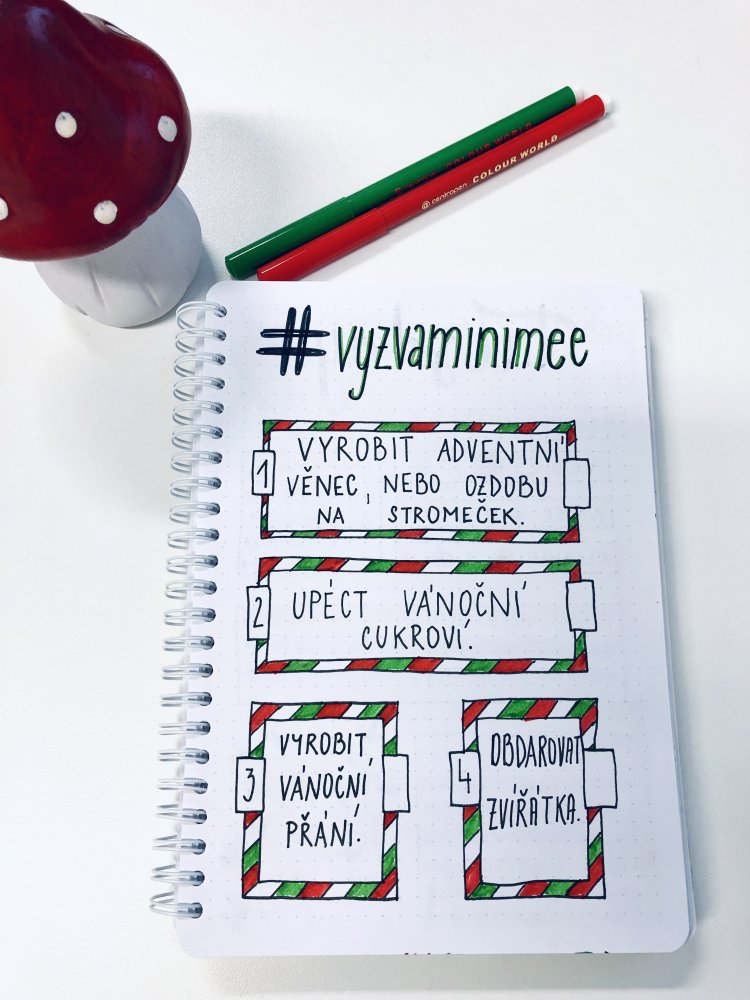 centropen COLOUR WORLD
centropen COLOUR WORLD
#vyzvaminimee
1
VYROBIT ADVENTNÍ
VĚNEC, NEBO OZDOBU
NA STROMEČEK.
2
UPÉCT VÁNOČNÍ
CUKROVÍ.
3
VYROBIT
VÁNOČNÍ
PŘÁNÍ.
4
OBDAROVAT
ZVÍŘÁTKA.